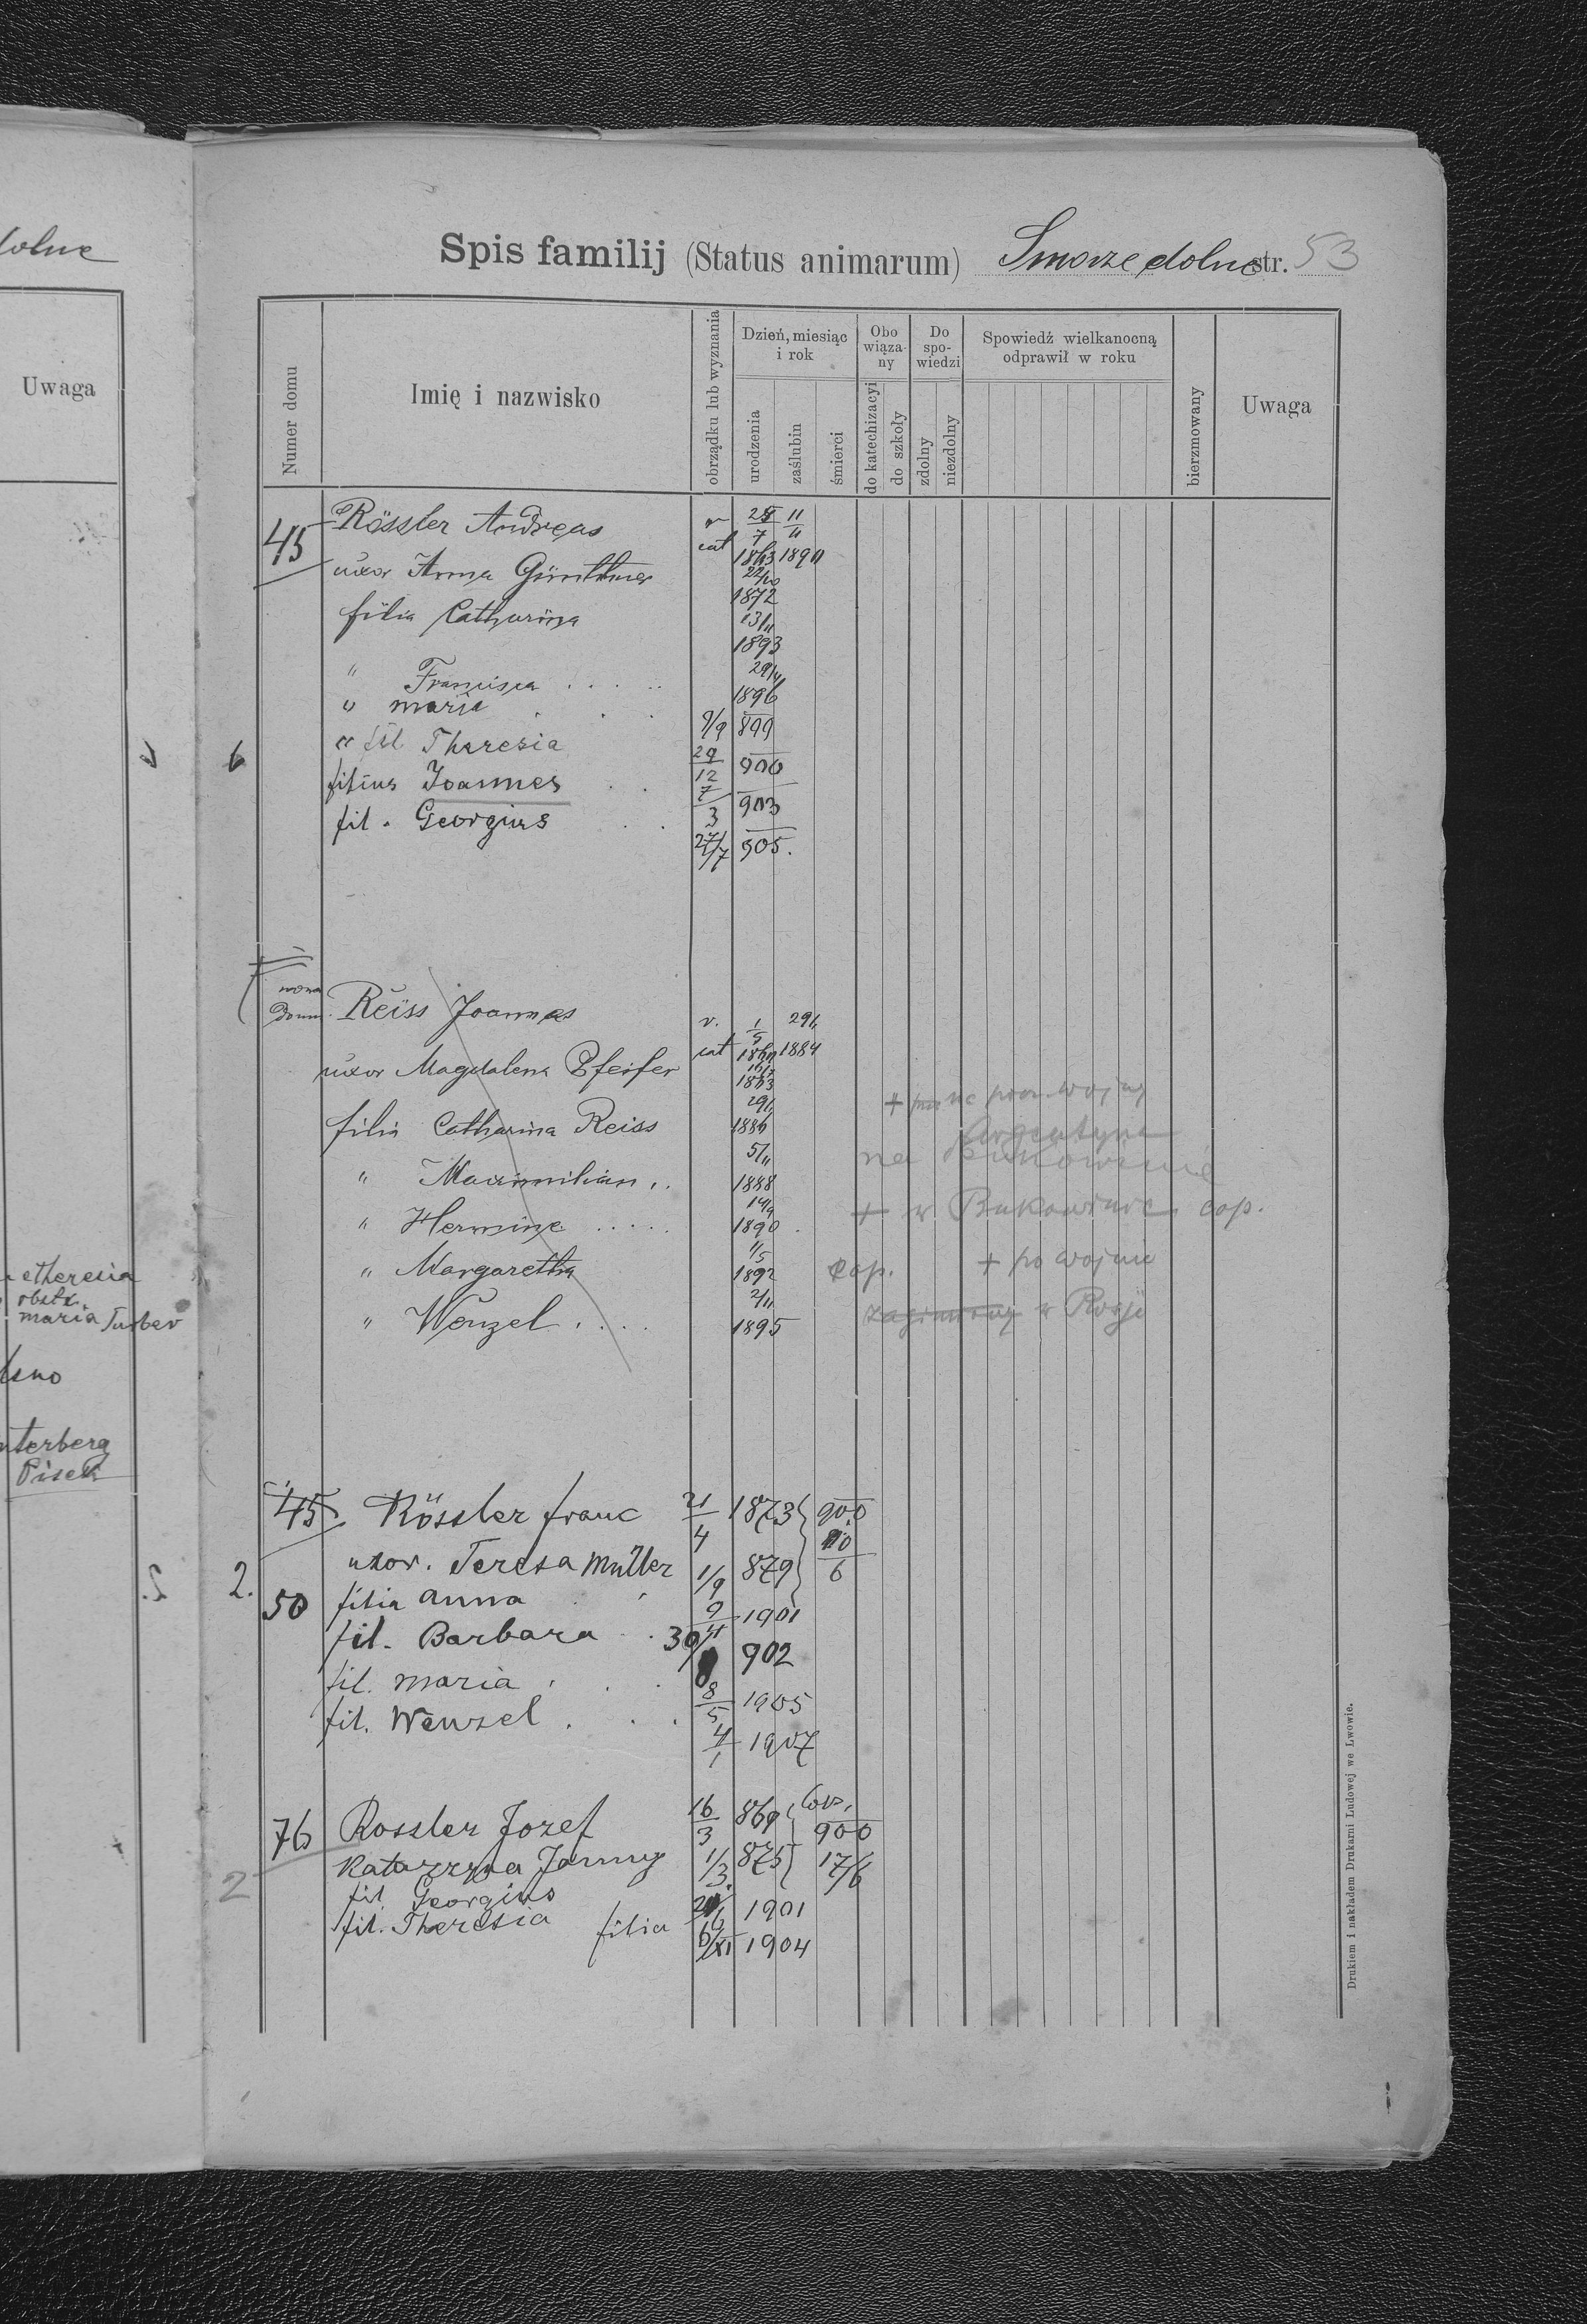 olne
Uwaga
etheresia
obstx.
maria Turber
lsno
nterberg
Pisek
Spis familij (Status animarum) Smorze dolne str. 53
Numer domu
Imię i nazwisko
obrządku lub wyznania
Dzień, miesiąc i rok
urodzenia
zaślubin
śmierci
Obowiąza-ny
do katechizacyi
do szkoły
Do spo-wiedzi
zdolny
niezdolny
Spowiedź wielkanocną odprawił w roku
bierzmowany
Uwaga
45 Rössler Andreas r cat 25/7 1863 11/11 1890
uxor Anna Günthner 22/10 1872
filia Catharina 13/11 1893
" Francisca . . . . 1896
" maria . . . 9/9 899
6 " fil Theresia 29/12 900
filius Joannes . . 7/3 903
fil. Georgius . . 27/7 905.
nowa Doum. Reiss Joannes r. cat 1/5 1884
uxor Magdalena Pfeifer 1863
filia Catharina Reiss 1886
+ wojny
Argentyna
" Maximilian " 5/11 1888 na Bukowinie
" Hermine . . . . . 14/9 1890 + w Bukowinie cop.
" Margaretha 11/5 1892 cop. + po wojnie
" Wenzel . . . . 2/11 1895 zaginiony w Rosji
45 Rössler franc 21/4 1873 900
uxor. Teresa Müller 1/9 879 10/6
2. 50 filia anna 9/11 1901
fil. Barbara . . 30 902
fil. maria . . . 8/5 1905
fil. Wenzel . . . 4/1 1907
76 Rossler Jozef 16/3 869 900
Katarzyna Janny 1/3. 875 17/6
2 fil Georgius 1901
fil. Theresia filia 6/XI 1904
Drukiem i nakładem Drukarni Ludowej we Lwowie.